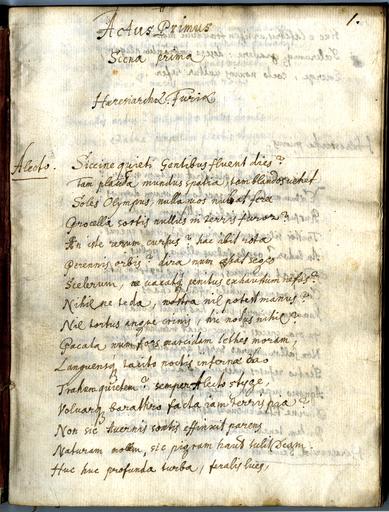 1.
Actus Primus
Scena prima
Haresiarcha. Furiæ
Alecto. Siccine quieti gentibus fluent dies?
tam placida mundus spatia, tam blandos vehet
Soles Olympus, nulla nos nubat fera
Procella sortis nullus in terris furor?
An iste rerum cursus? hac abit rota
Perennis orbis? dira num seges
Scelerum, penitus exhaustum nefas?
Nihil ne teda, nostra nil potest manus?
Nil tortus angue crinis, hic nobis nihil
Pacata num fors marcidam lethes moram,
Languensq tacito noctis infernæ
Traham quietem? semper Alecto styge,
Volvarq barathro facta iam terris
Non sic Averni sontis effinxit parens
Naturam molem, sic pigram haud tulit Deam.
Huc huc profunda turba, feralis lues,